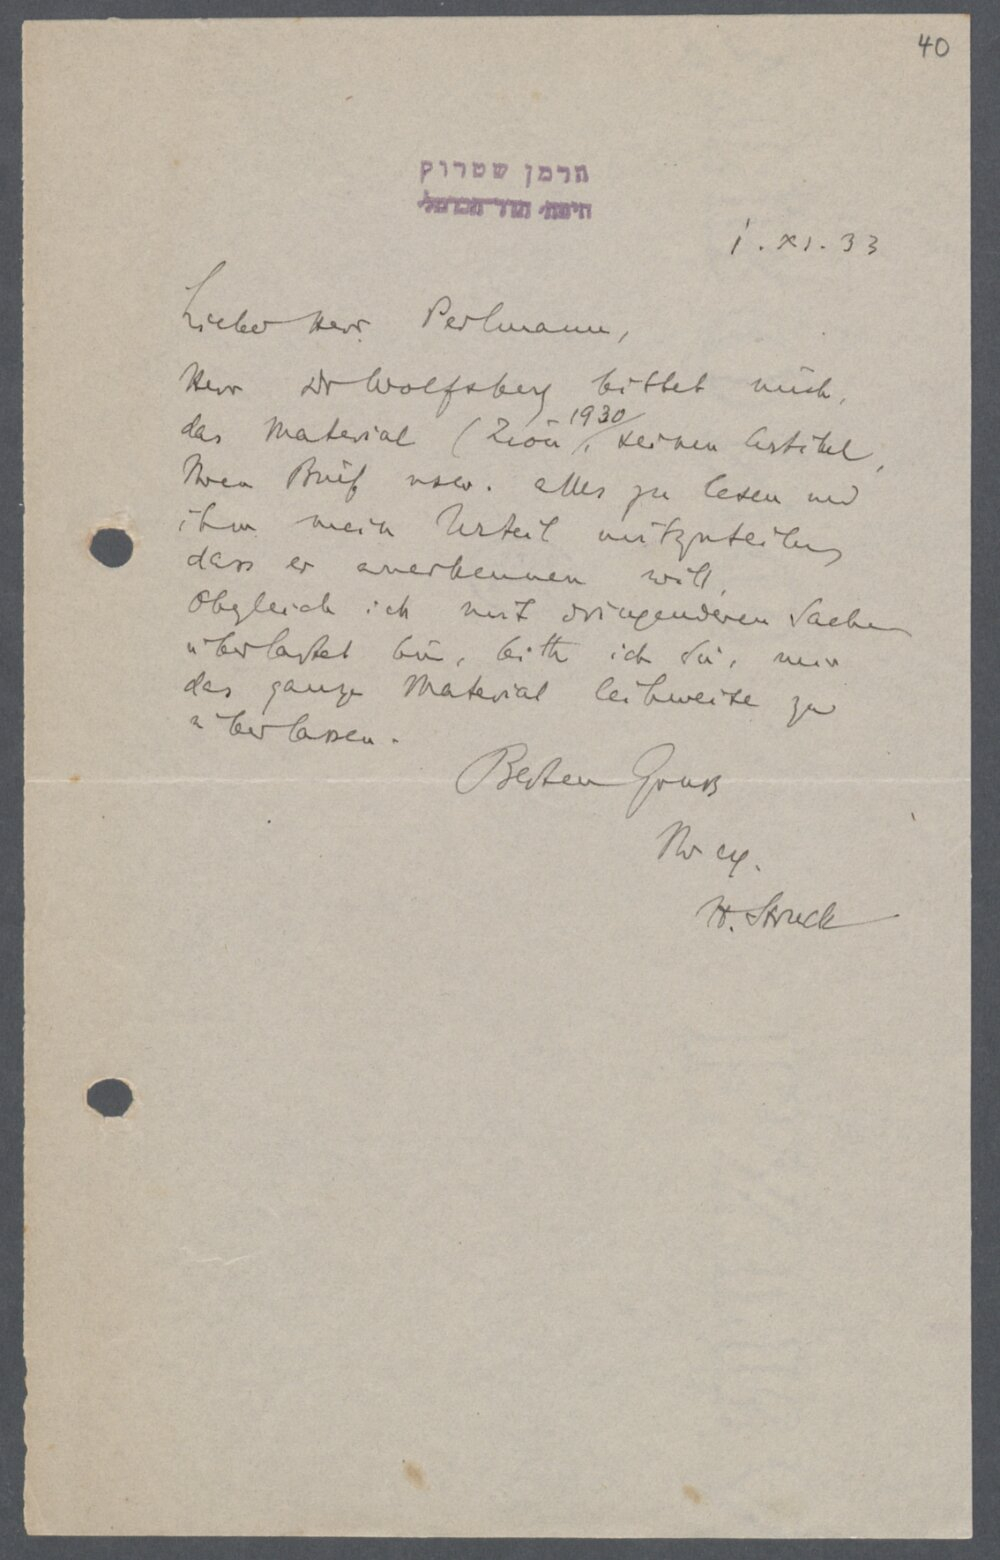 40
הרמן שטרוק
חיפה, הדר הכרמל
1. XI. 33
Lieber Herr Perlmann,
Herr Dr Wolfsberg bittet mich,
das Material (Zion 1930, seinen Artikel,
Ihren Brief usw. alles zu lesen und
ihm mein Urteil mitzuteilen,
dass er anerkennen will.
Obgleich ich mit dringenderen Sachen
überlastet bin, bitte ich Sie, mir
das ganze Material leihweise zu
überlassen.
Besten Gruss
Ihr erg.
H. Struck